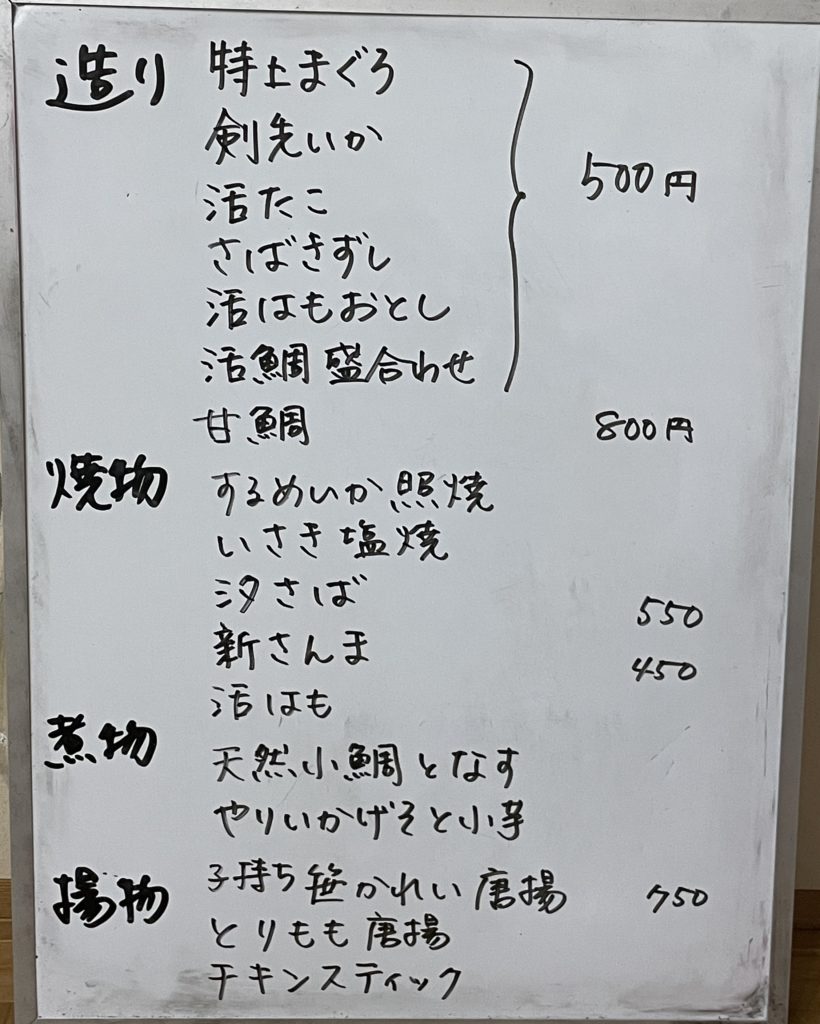 造り 特上まぐろ
剣先いか
500円
活たこ
さばきずし
活はもおとし
活鯛盛合わせ
甘鯛 800円
焼物 するめいか照焼
いさき塩焼
汐さば 550
新さんま 450
活はも
煮物 天然小鯛となす
やりいかげそと小芋
揚物 子持ち笹かれい唐揚 750
とりもも唐揚
チキンスティック